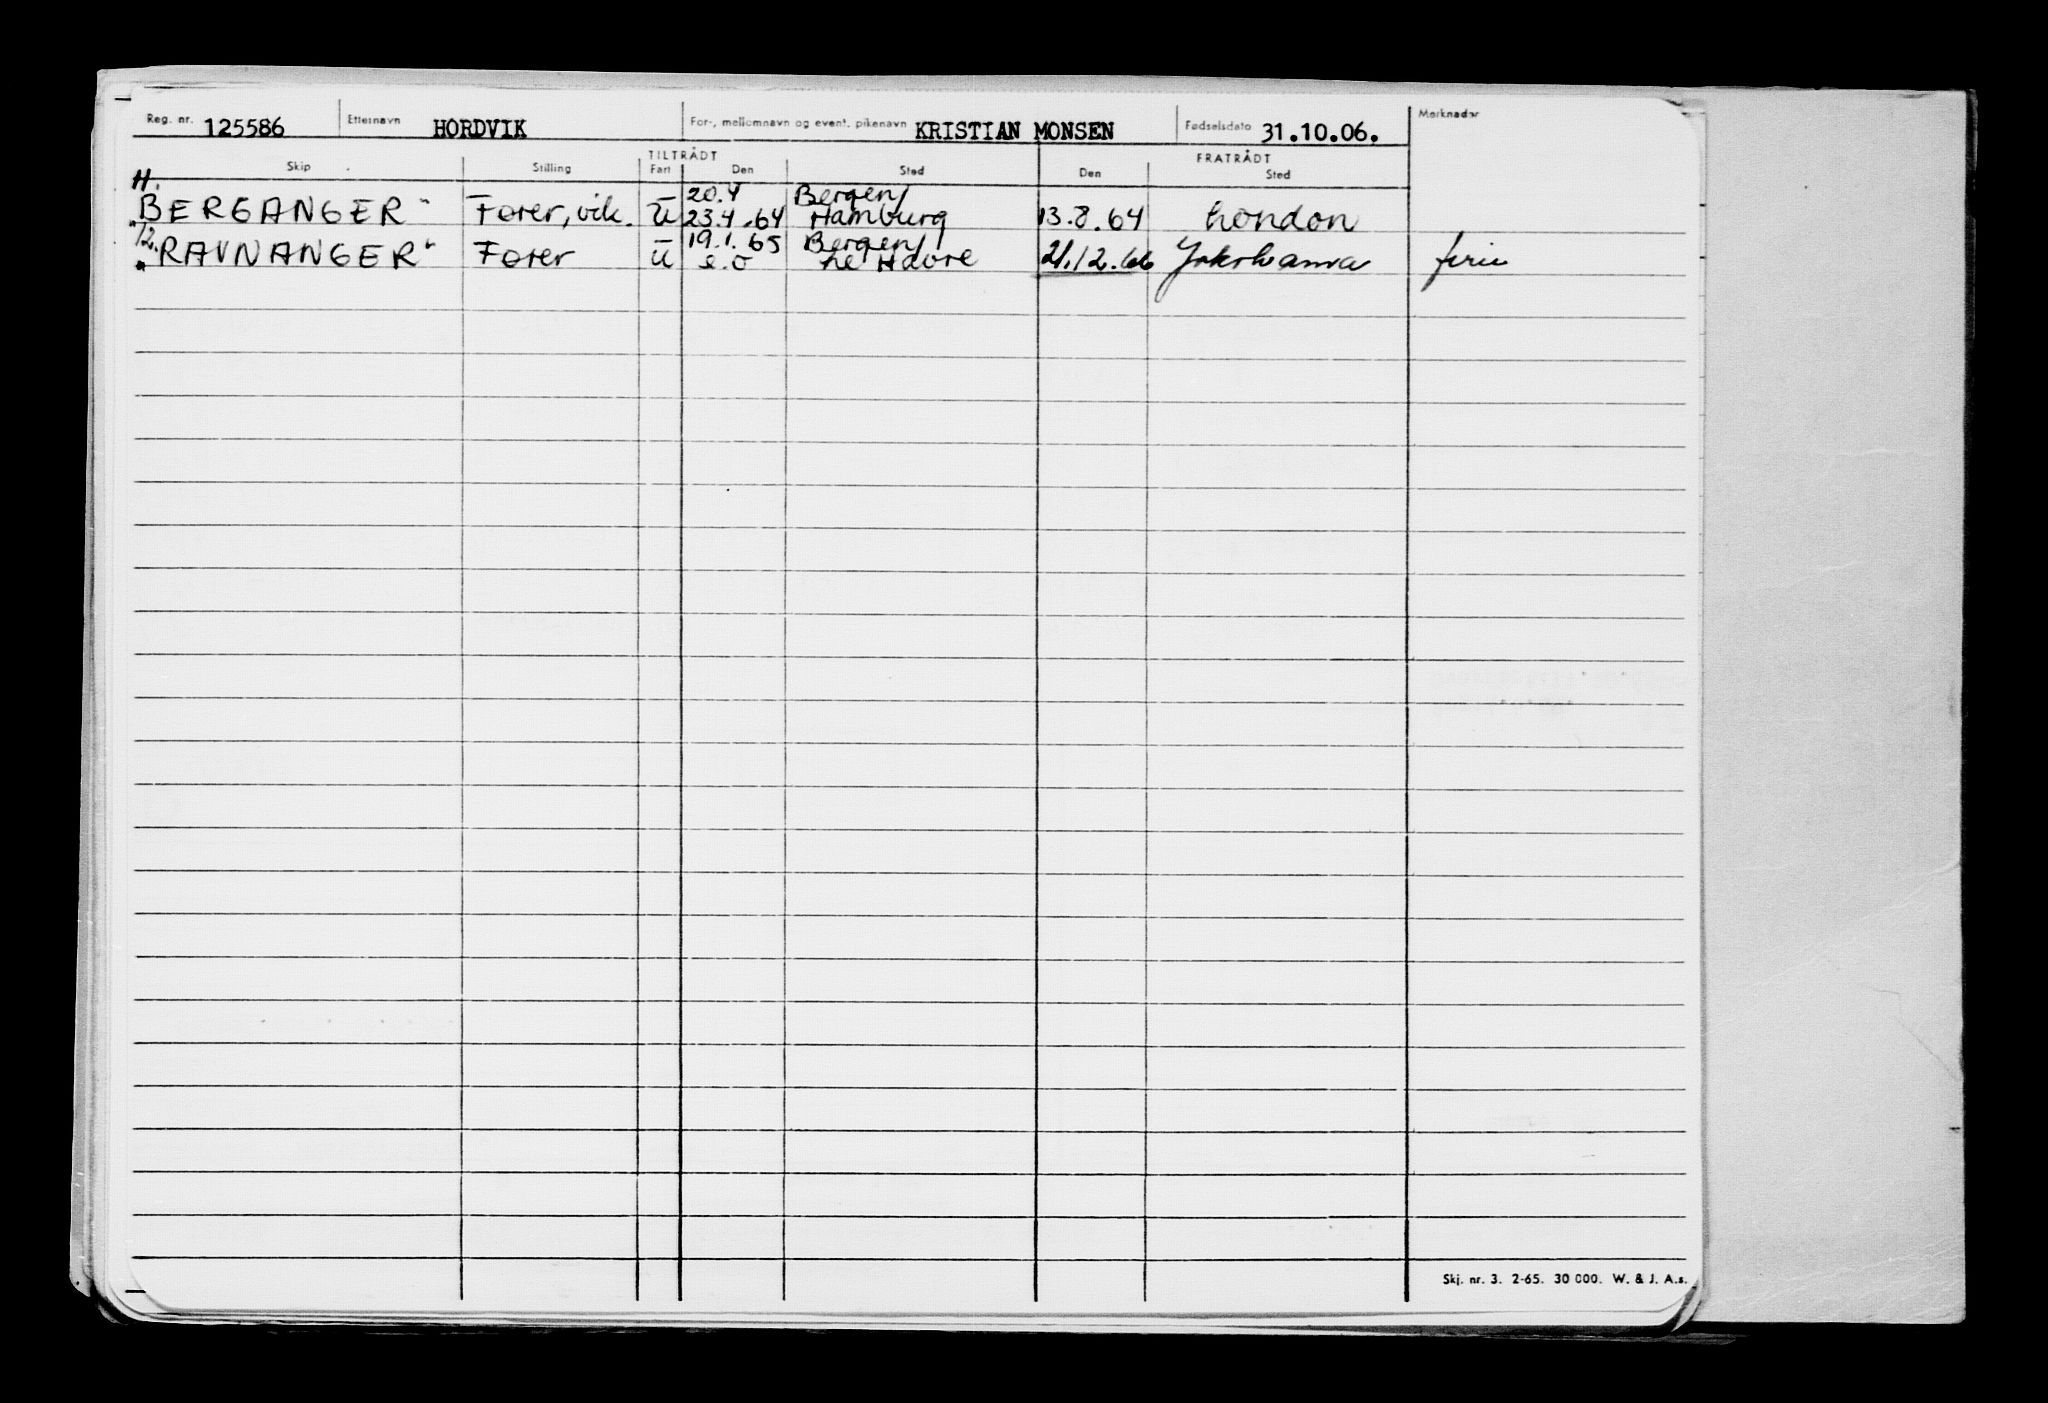 Reg. nr. 125586 Etternavn HORDVIK For-, mellomnavn og event. pikenavn KRISTIAN MONSEN Fødselsdato 31.10.06. Merknader
TILTRÅDT FRATRÅDT
Skip Stilling Fart Den Sted Den Sted
H.
20.4 Bergen/
BERGANGER" Fører, vik. U 23.4.64 Hamburg 13.8.64 London
12. 19.1.65 Bergen/
"RAVNANGER" Fører U Le Havre 21.12.66 Yokohama ferie
Skj. nr. 3. 2-65. 30 000. W. & J. A.s.